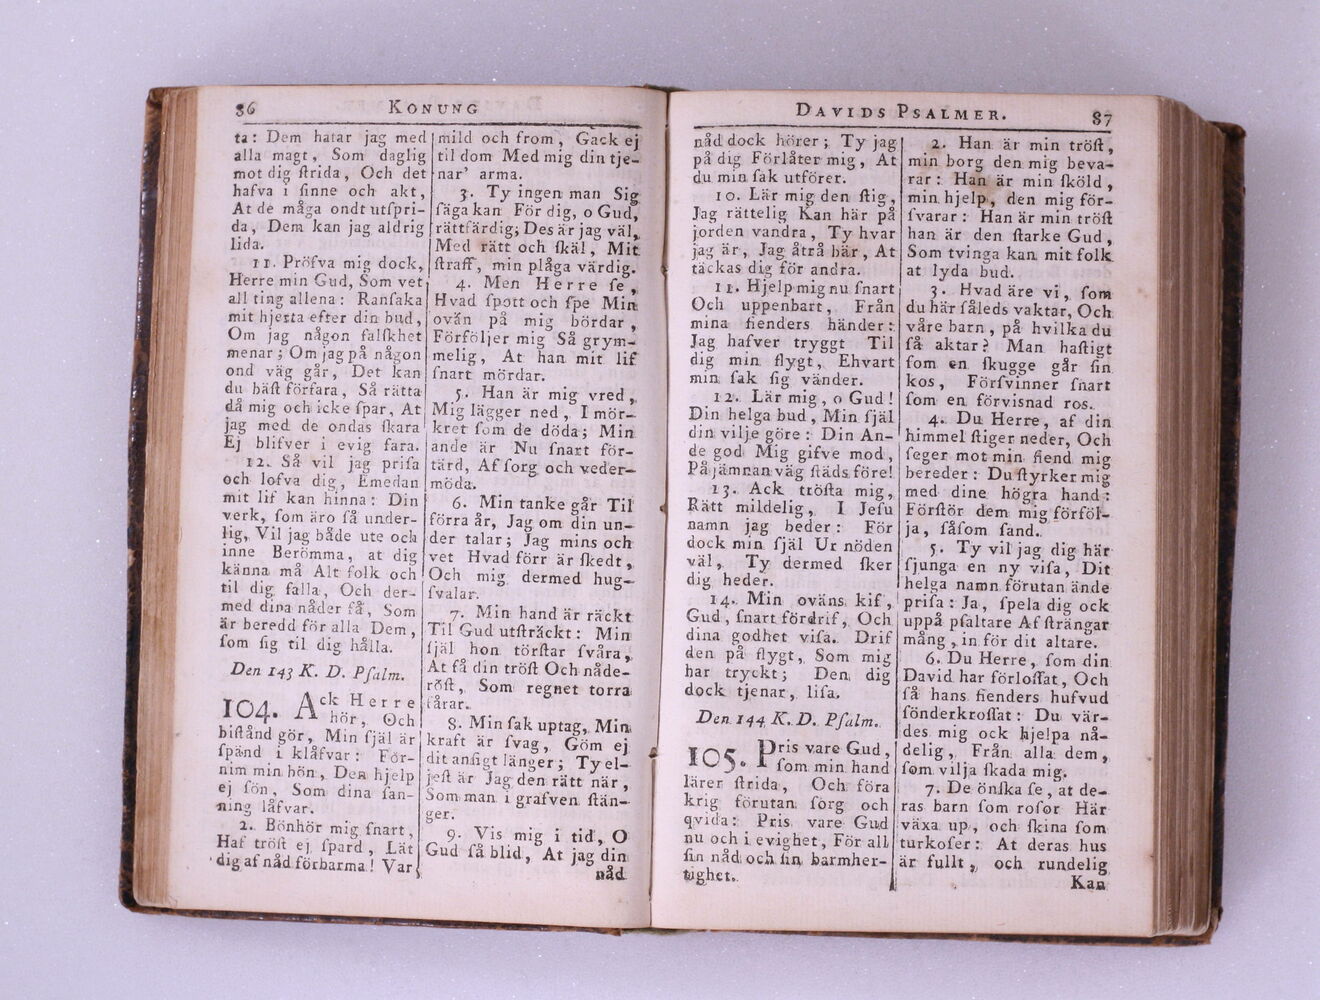 86 KONUNG
ta: Dem hatar jag med
alla magt, Som daglig
mot dig ſtrida, Och det
hafva i ſinne och akt,
At de måga ondt utſpri-
da, Dem kan jag aldrig
lida.
11. Pröfva mig dock,
Herre min Gud, Som vet
all ting allena: Ranſaka
mit hjerta efter din bud,
Om jag någon falſkhet
menar; Om jag på någon
ond väg går, Det kan
du bäſt förfara, Så rätta
då mig och icke ſpar, At
jag med de ondas ſkara
Ej blifver i evig fara.
12. Så vil jag priſa
och lofva dig, Emedan
mit lif kan hinna: Din
verk, ſom äro ſå under-
lig, Vil jag både ute och
inne Berömma, at dig
känna må Alt folk och
til dig falla, Och der-
med dina nåder få, Som
är beredd för alla Dem,
ſom ſig til dig hålla.
Den 143 K. D. Pſalm.
104. Ack Herre
hör, Och
biſtånd gör, Min ſjäl är
ſpänd i klåfvar: För-
nim min bön, Den hjelp
ej ſön, Som dina ſan-
ning låfvar.
2. Bönhör mig ſnart,
Haf tröſt ej ſpard, Låt
dig af nåd förbarma! Var
mild och from, Gack ej
til dom Med mig din tje-
nar' arma.
3. Ty ingen man Sig
ſäga kan För dig, o Gud,
rättfärdig; Des är jag väl,
Med rätt och ſkäl, Mit
ſtraff, min plåga värdig.
4. Men Herre ſe,
Hvad ſpott och ſpe Min
ovän på mig bördar,
Förföljer mig Så grym-
melig, At han mit lif
ſnart mördar.
5. Han är mig vred,
Mig lägger ned, I mör-
kret ſom de döda; Min
ande är Nu ſnart för-
tärd, Af ſorg och veder-
möda.
6. Min tanke går Til
förra år, Jag om din un-
der talar; Jag mins och
vet Hvad förr är ſkedt,
Och mig dermed hug-
ſvalar.
7. Min hand är räckt
Til Gud utſträckt: Min
ſjäl hon törſtar ſvåra,
At få din tröſt Och nåde-
röſt, Som regnet torra
fårar.
8. Min ſak uptag, Min
kraft är ſvag, Göm ej
dit anſigt länger; Ty el-
jeſt är Jag den rätt när,
Som man i grafven ſtän-
ger.
9. Vis mig i tid, O
Gud ſå blid, At jag din
nåd
DAVIDS PSALMER. 87
nåd dock hörer; Ty jag
på dig Förlåter mig, At
du min ſak utförer.
10. Lär mig den ſtig,
Jag rättelig Kan här på
jorden vandra, Ty hvar
jag är, Jag åtrå bär, At
täckas dig för andra.
11. Hjelp mig nu ſnart
Och uppenbart, Från
mina fienders händer:
Jag hafver tryggt Til
dig min flygt, Ehvart
min ſak ſig vänder.
12. Lär mig, o Gud!
Din helga bud, Min ſjäl
din vilje göre: Din An-
de god Mig gifve mod,
På jämnan väg ſtäds före!
13. Ack tröſta mig,
Rätt mildelig, I Jeſu
namn jag beder: För
dock min ſjäl Ur nöden
väl, Ty dermed ſker
dig heder.
14. Min oväns kif,
Gud, ſnart fördrif, Och
dina godhet viſa. Drif
den på flygt, Som mig
har tryckt; Den dig
dock tjenar, liſa.
Den 144 K. D. Pſalm.
105. Pris vare Gud,
ſom min hand
lärer ſtrida, Och föra
krig förutan ſorg och
qvida: Pris vare Gud
nu och i evighet, För all
ſin nåd och ſin barmher-
tighet.
2. Han är min tröſt,
min borg den mig beva-
rar: Han är min ſköld,
min hjelp, den mig för-
ſvarar: Han är min tröſt
han är den ſtarke Gud,
Som tvinga kan mit folk
at lyda bud.
3. Hvad äre vi, ſom
du här ſåleds vaktar, Och
våre barn, på hvilka du
ſå aktar? Man haſtigt
ſom en ſkugge går ſin
kos, Förſvinner ſnart
ſom en förvisnad ros.
4. Du Herre, af din
himmel ſtiger neder, Och
ſeger mot min fiend mig
bereder: Du ſtyrker mig
med dine högra hand:
Förſtör dem mig förföl-
ja, ſåſom ſand.
5. Ty vil jag dig här
ſjunga en ny viſa, Dit
helga namn förutan ände
priſa: Ja, ſpela dig ock
uppå pſaltare Af ſträngar
mång, in för dit altare.
6. Du Herre, ſom din
David har förloſſat, Och
ſå hans fienders hufvud
ſönderkroſſat: Du vär-
des mig ock hjelpa nå-
delig, Från alla dem,
ſom vilja ſkada mig.
7. De önſka ſe, at de-
ras barn ſom roſor Här
växa up, och ſkina ſom
turkoſer: At deras hus
är fullt, och rundelig
Kan